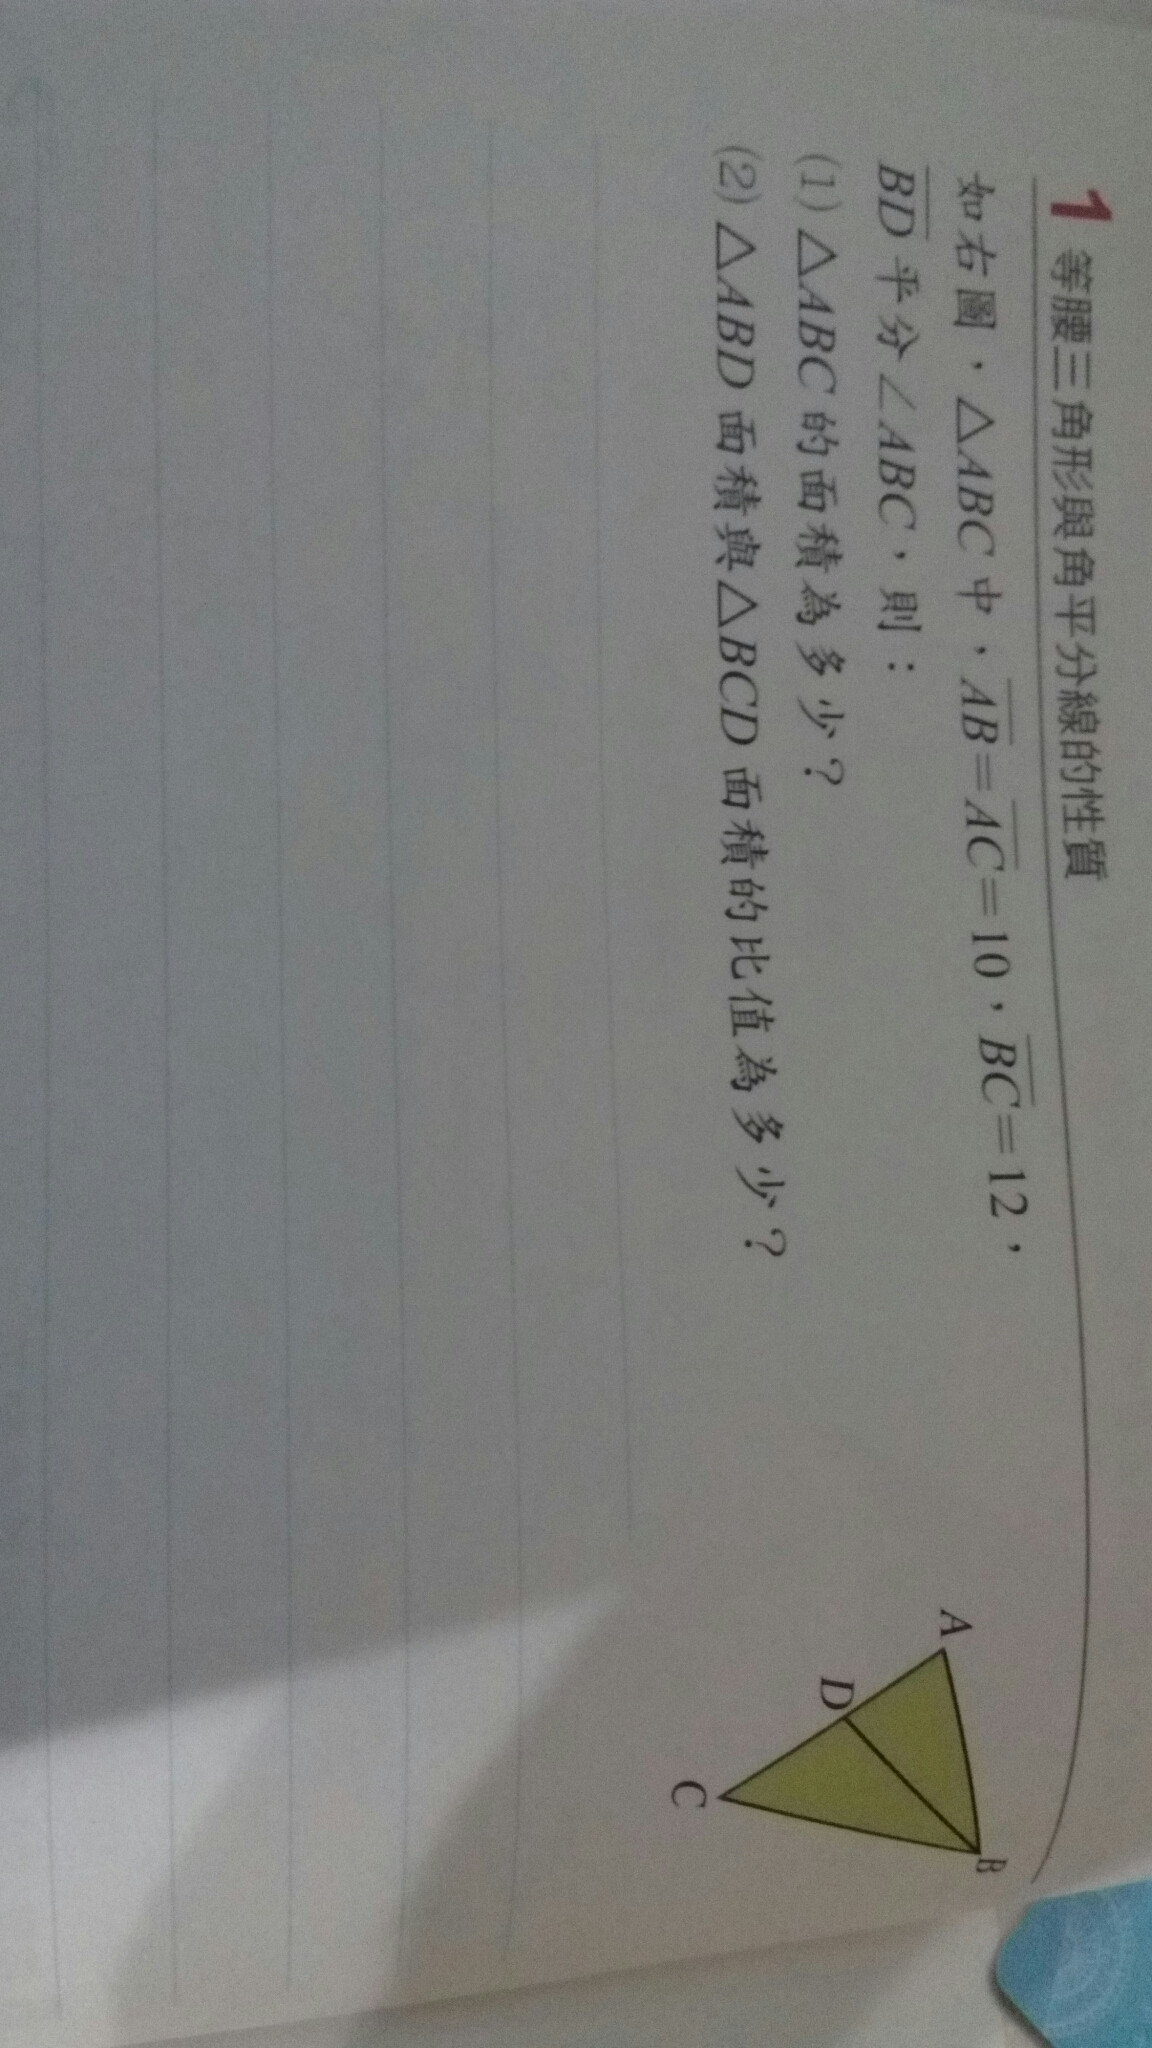 1 等腰三角形與角平分線的性質
如右圖，△ABC中，AB=AC=10，BC=12，
BD平分∠ABC，則：
(1)△ABC的面積為多少？
(2)△ABD面積與△BCD面積的比值為多少？
A
B
D
C